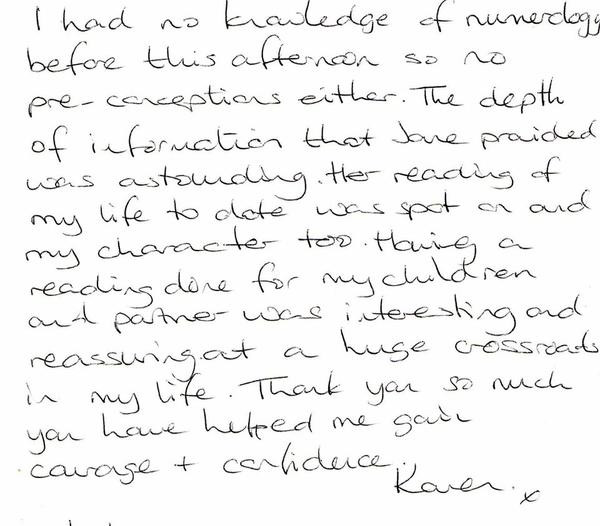 I had no knowledge of numerology
before this afternoon so no
pre-conceptions either. The depth
of information that Jane provided
was astounding. Her reading of
my life to date was spot on and
my character too. Having a
reading done for my children
and partner was interesting and
reassuring at a huge crossroads
in my life. Thank you so much
you have helped me gain
courage + confidence.
Karen. x